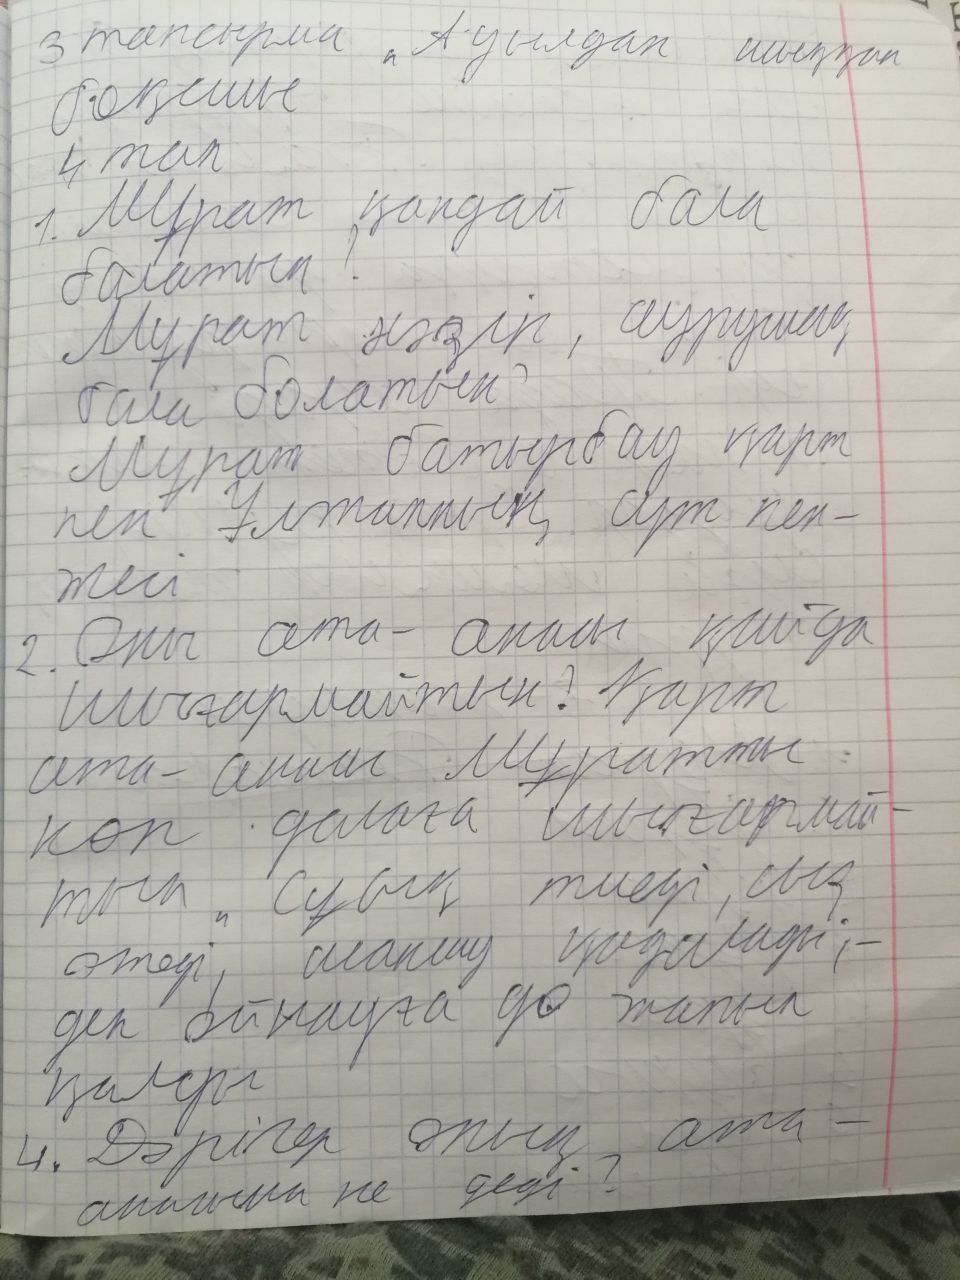 3 тапсырма „Ауылдан шыққан
боксшы
4 тап
1. Мұрат қандай бала
болатын?
Мұрат нәзік, аурушаң
бала болатын
Мұрат батырбау қарт
пен Ұлтанның арт кен-
жесі
2. Оны ата- анасы қайда
шығармайтын? Қарт
ата- анасы Мұратты
көп далаға шығармай-
тын „Суық тиеді, сыз
өтеді, шаншу қадалады,-
деп ойнауға да тапын
қалды
4. Дәрігер оның ата -
анасына не деді?